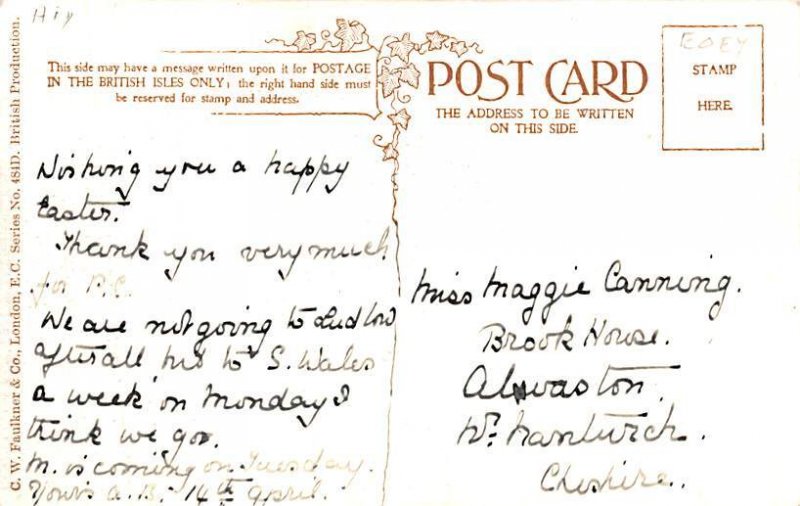 C. W. Faulkner & Co., London, E.C. Series No. 484D. British Production.
This side may have a message written upon it for POSTAGE
IN THE BRITISH ISLES ONLY; the right hand side must
be reserved for stamp and address.
POST CARD
THE ADDRESS TO BE WRITTEN
ON THIS SIDE.
STAMP
HERE.
Wishing you a happy
Easter.
Thank you very much
for P.C.
We are not going to Ludlow
after all but to S. Wales
a week on Monday I
think we go.
M. is coming on Tuesday.
Yours a. B. 14th April.
Miss Maggie Canning.
Brook House.
Alvaston.
Nr. Nantwich.
Cheshire.